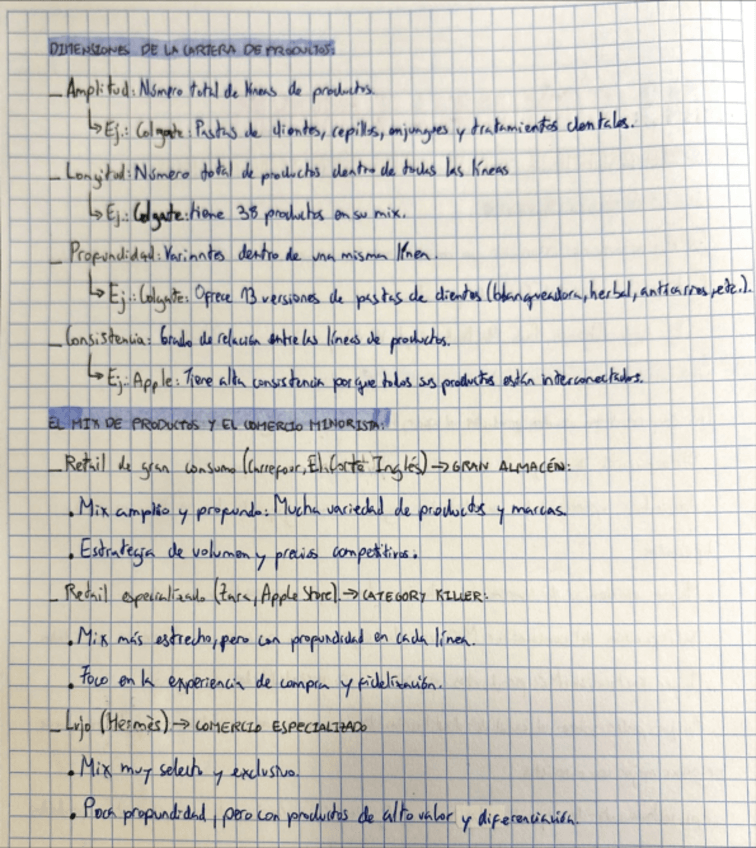 DIMENSIONES DE LA CARTERA DE PRODUCTOS:
_ Amplitud: Número total de líneas de productos.
↳ Ej.: Colgate: Pastas de dientes, cepillos, enjuagues y tratamientos dentales.
_ Longitud: Número total de productos dentro de todas las líneas
↳ Ej.: Colgate: tiene 38 productos en su mix.
_ Profundidad: Variantes dentro de una misma línea.
↳ Ej.: Colgate: Ofrece 13 versiones de pastas de dientes (blanqueadora, herbal, anticaries, etc.).
_ Consistencia: Grado de relación entre las líneas de productos.
↳ Ej.: Apple: Tiene alta consistencia porque todos sus productos están interconectados.
EL MIX DE PRODUCTOS Y EL COMERCIO MINORISTA:
_ Retail de gran consumo (Carrefour, El Corte Inglés) → GRAN ALMACÉN:
• Mix amplio y profundo: Mucha variedad de productos y marcas.
• Estrategia de volumen y precios competitivos.
_ Retail especializado (Zara, Apple Store). → CATEGORY KILLER:
• Mix más estrecho, pero con profundidad en cada línea.
• Foco en la experiencia de compra y fidelización.
_ Lujo (Hermès) → COMERCIO ESPECIALIZADO
• Mix muy selecto y exclusivo.
• Poca profundidad, pero con productos de alto valor y diferenciación.